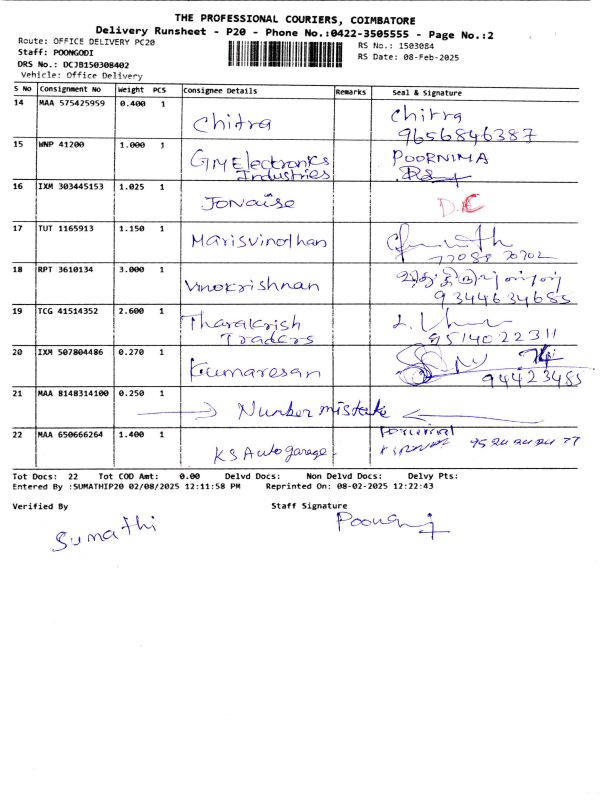 THE PROFESSIONAL COURIERS, COIMBATORE
Delivery Runsheet - P20 - Phone No.:0422-3505555 - Page No.:2
Route: OFFICE DELIVERY PC20
RS No.: 1503084
Staff: POONGODI
RS Date: 08-Feb-2025
DRS No.: DCJB150308402
Vehicle: Office Delivery
S No Consignment No Weight PCS Consignee Details Remarks Seal & Signature
14 MAA 575425959 0.400 1 Chitra Chitra
9656846387
15 WNP 41200 1.000 1 GM Electronics POORNIMA
Industries
16 IXM 303445153 1.025 1 Jonaise D.K
17 TUT 1165913 1.150 1 Marisvinothan
77088 70702
18 RPT 3610134 3.000 1 Vinokrishnan
9344634685
19 TCG 41514352 2.600 1 Tharakrish
Traders 9514022311
20 IXM 507804486 0.270 1 Kumaresan
94423485
21 MAA 8148314100 0.250 1 Number mistake
22 MAA 650666264 1.400 1 KS Auto garage
Tot Docs: 22 Tot COD Amt: 0.00 Delvd Docs: Non Delvd Docs: Delvy Pts:
Entered By :SUMATHIP20 02/08/2025 12:11:58 PM Reprinted On: 08-02-2025 12:22:43
Verified By Staff Signature
Sumathi